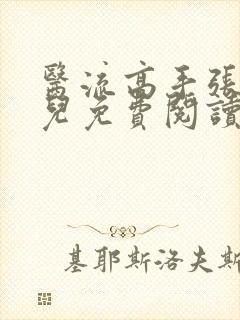 醫流高手張
兒免費閱讀
基耶斯洛夫斯